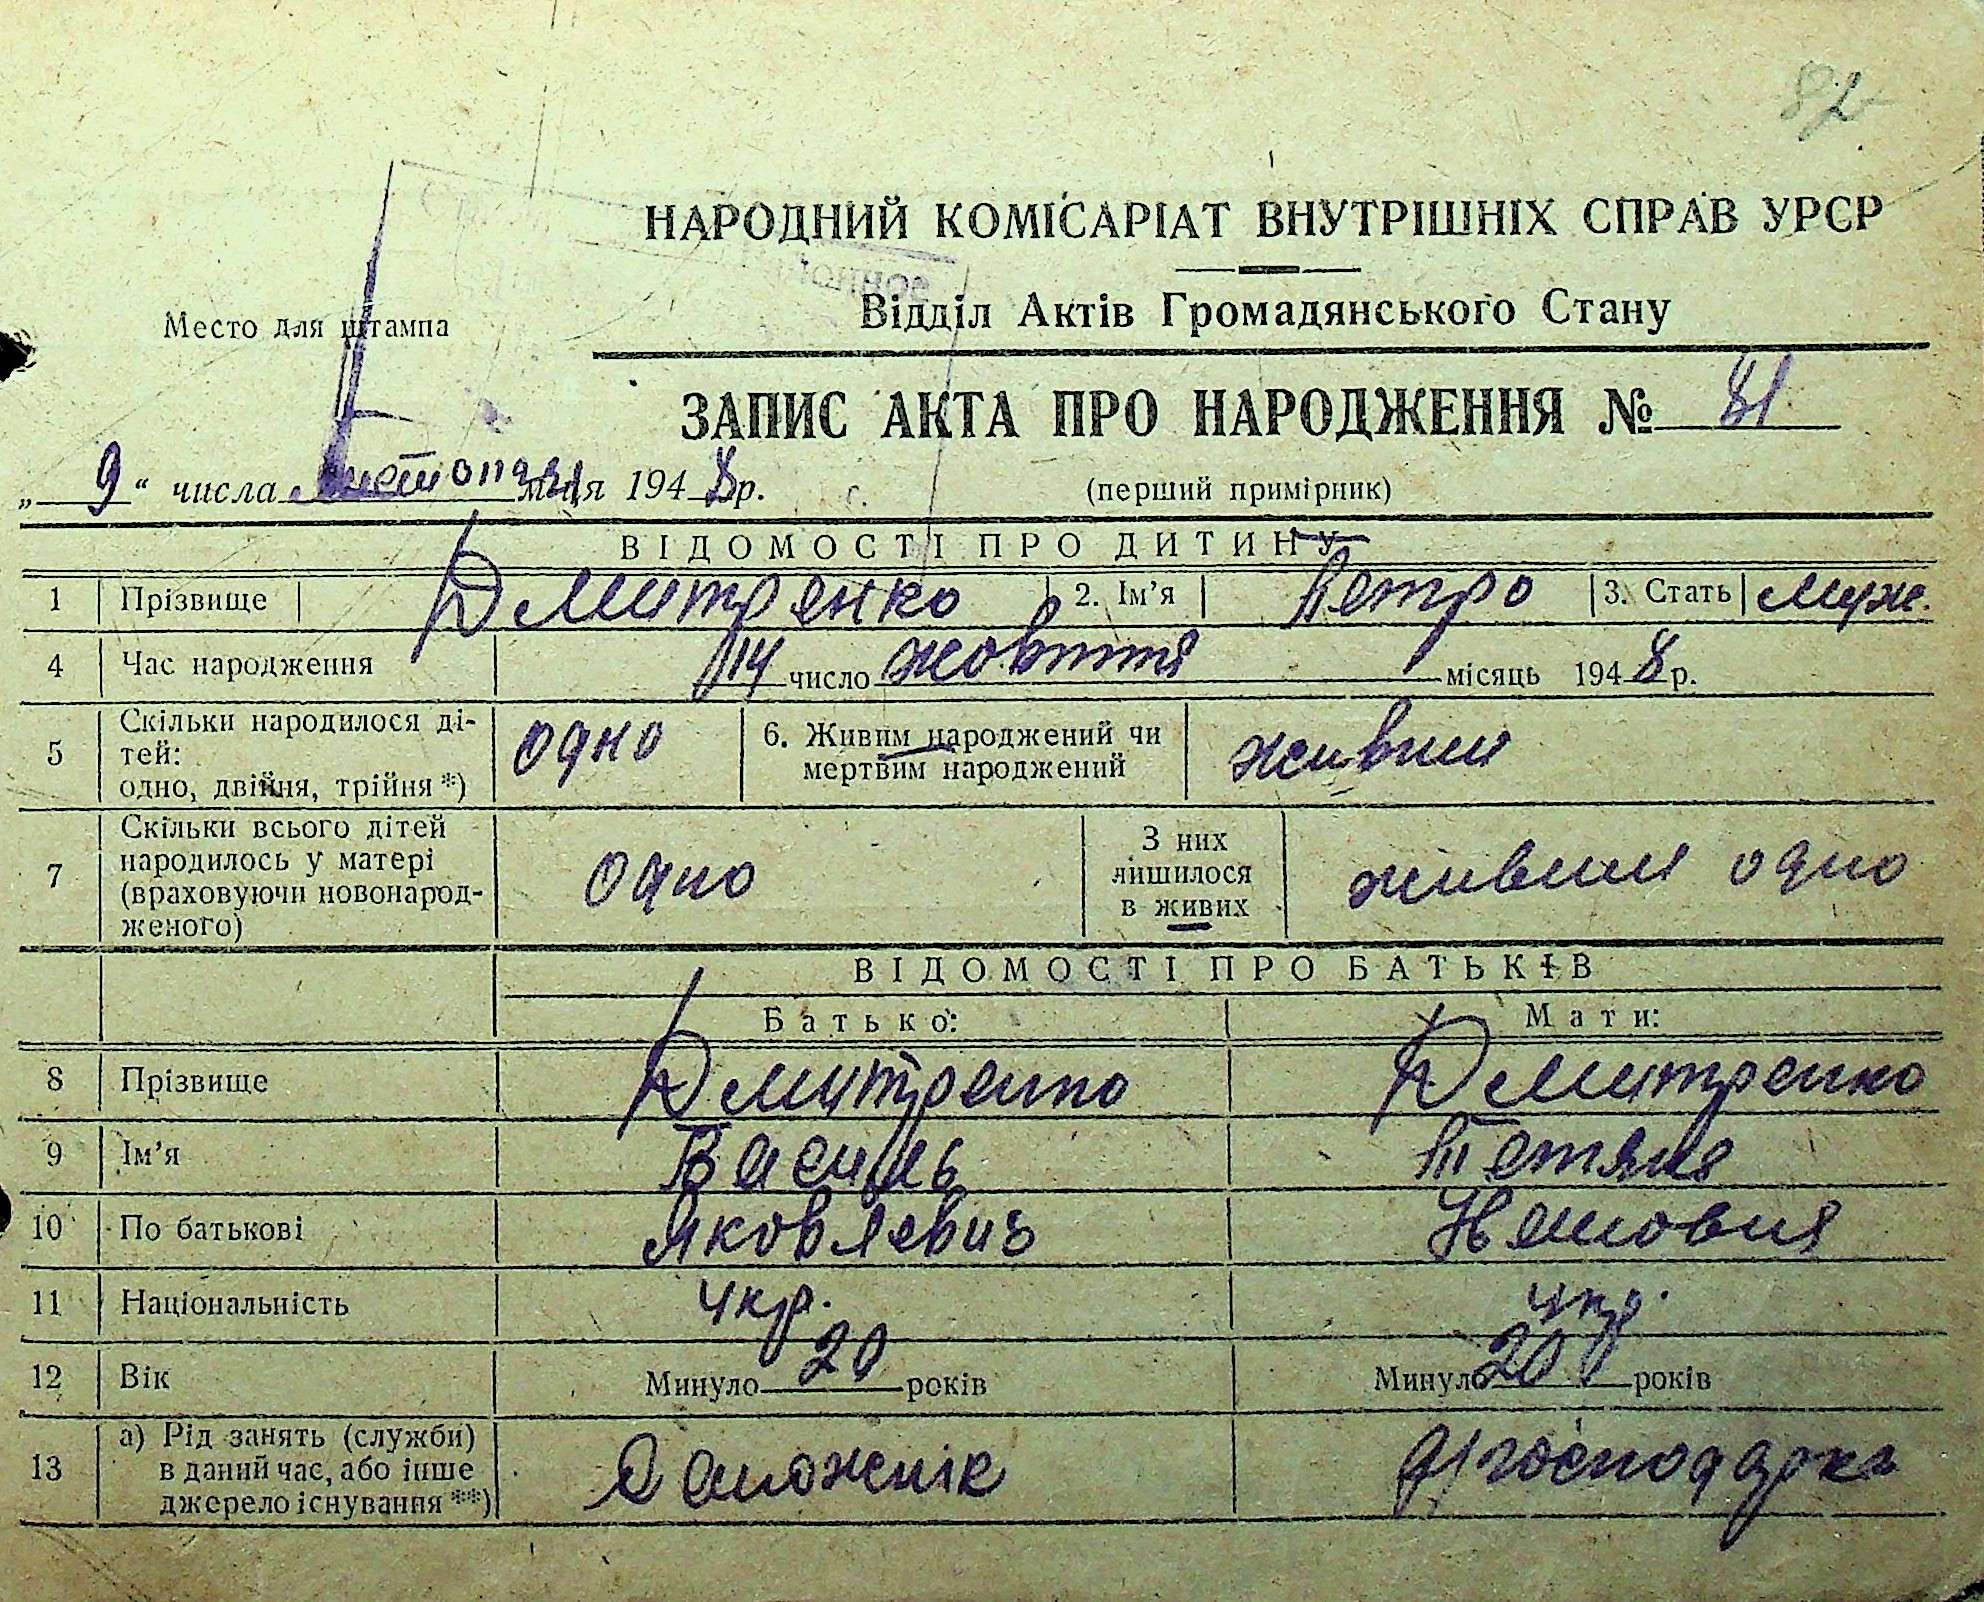 82
НАРОДНИЙ КОМІСАРІАТ ВНУТРІШНІХ СПРАВ УРСР
Відділ Актів Громадянського Стану
Место для штампа
ЗАПИС АКТА ПРО НАРОДЖЕННЯ № 81
„ 9 “ числа листопада м-ця 1948 р. (перший примірник)
ВІДОМОСТІ ПРО ДИТИНУ
1 Прізвище Дмитренко 2. Ім’я Петро 3. Стать муж.
4 Час народження 14 число жовтня місяць 1948 р.
5 Скільки народилося ді-
тей:
одно, двійня, трійня *) одно 6. Живим народжений чи
мертвим народжений живим
7 Скільки всього дітей
народилось у матері
(враховуючи новонарод-
женого) одно З них
лишилося
в живих живим одно
ВІДОМОСТІ ПРО БАТЬКІВ
Батько: Мати:
8 Прізвище Дмитренко Дмитренко
9 Ім’я Василь Тетяна
10 По батькові Яковлевич
11 Національність укр. укр.
12 Вік Минуло 20 років Минуло 20 років
13 а) Рід занять (служби)
в даний час, або інше
джерело існування **) д/господарка